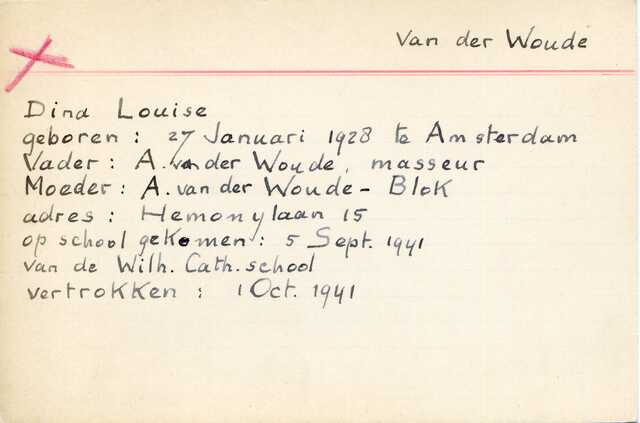 Van der Woude
Dina Louise
geboren : 27 Januari 1928 te Amsterdam
Vader : A. van der Woude, masseur
Moeder : A. van der Woude - Blok
adres : Hemonylaan 15
op school gekomen : 5 Sept. 1941
van de Wilh. Cath. school
vertrokken : 1 Oct. 1941